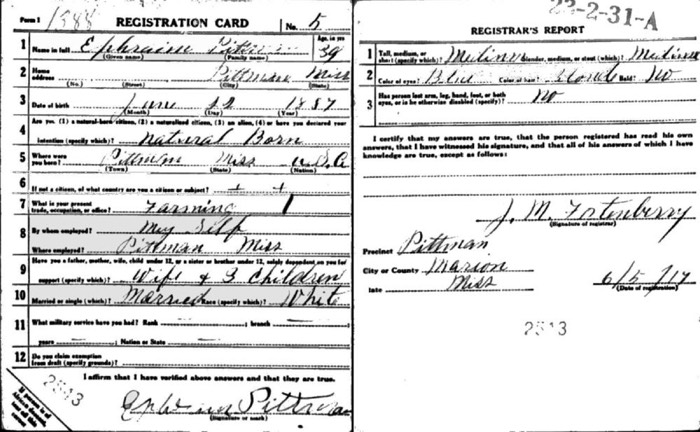 Form 1 1388 REGISTRATION CARD No. 5
1 Name in full Ephraim Pittman Age, in yrs 39
(Given name) (Family name)
2 Home address Pittman Miss
(No.) (Street) (City) (State)
3 Date of birth June 22 1887
(Month) (Day) (Year)
4 Are you (1) a natural-born citizen, (2) a naturalized citizen, (3) an alien, (4) or have you declared your
intention (specify which)? Natural Born
5 Where were you born? Pittman Miss U.S.A
(Town) (State) (Nation)
6 If not a citizen, of what country are you a citizen or subject?
7 What is your present trade, occupation, or office? Farming
8 By whom employed? My Self
Where employed? Pittman Miss
9 Have you a father, mother, wife, child under 12, or a sister or brother under 12, solely dependent on you for
support (specify which)? Wife & 3 Children
10 Married or single (which)? Married Race (specify which)? White
11 What military service have you had? Rank ; branch
years ; Nation or State
12 Do you claim exemption from draft (specify grounds)?
I affirm that I have verified above answers and that they are true.
2513
Pittman
(Signature or mark)
If person is of
23-2-31-A
REGISTRAR'S REPORT
1 Tall, medium, or short (specify which)? Medium Slender, medium, or stout (which)? Medium
2 Color of eyes? Blue Color of hair? Blonde Bald? No
3 Has person lost arm, leg, hand, foot, or both eyes, or is he otherwise disabled (specify)? No
I certify that my answers are true, that the person registered has read his own
answers, that I have witnessed his signature, and that all of his answers of which I
have knowledge are true, except as follows:
J. M. Fortenberry
(Signature of registrar)
Precinct Pittman
City or County Marion
State Miss 6/5/17
(Date of registration)
2513